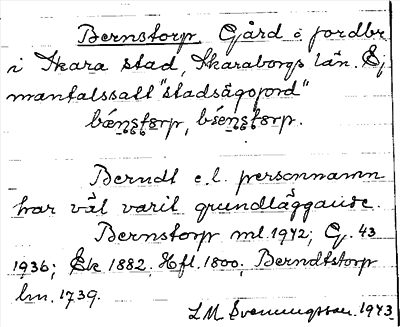 Bernstorp. Gård å jordbr
i Skara stad, Skaraborgs län. Ej
mantalssatt "stadsägojord"
Berndt e.l. personnamn
har väl varit grundläggande.
Bernstorp ml. 1942; G. 43
1936; Ek 1882. Hfl. 1800. Berndtstorp
lm. 1739.
L M Svenungsson. 1943